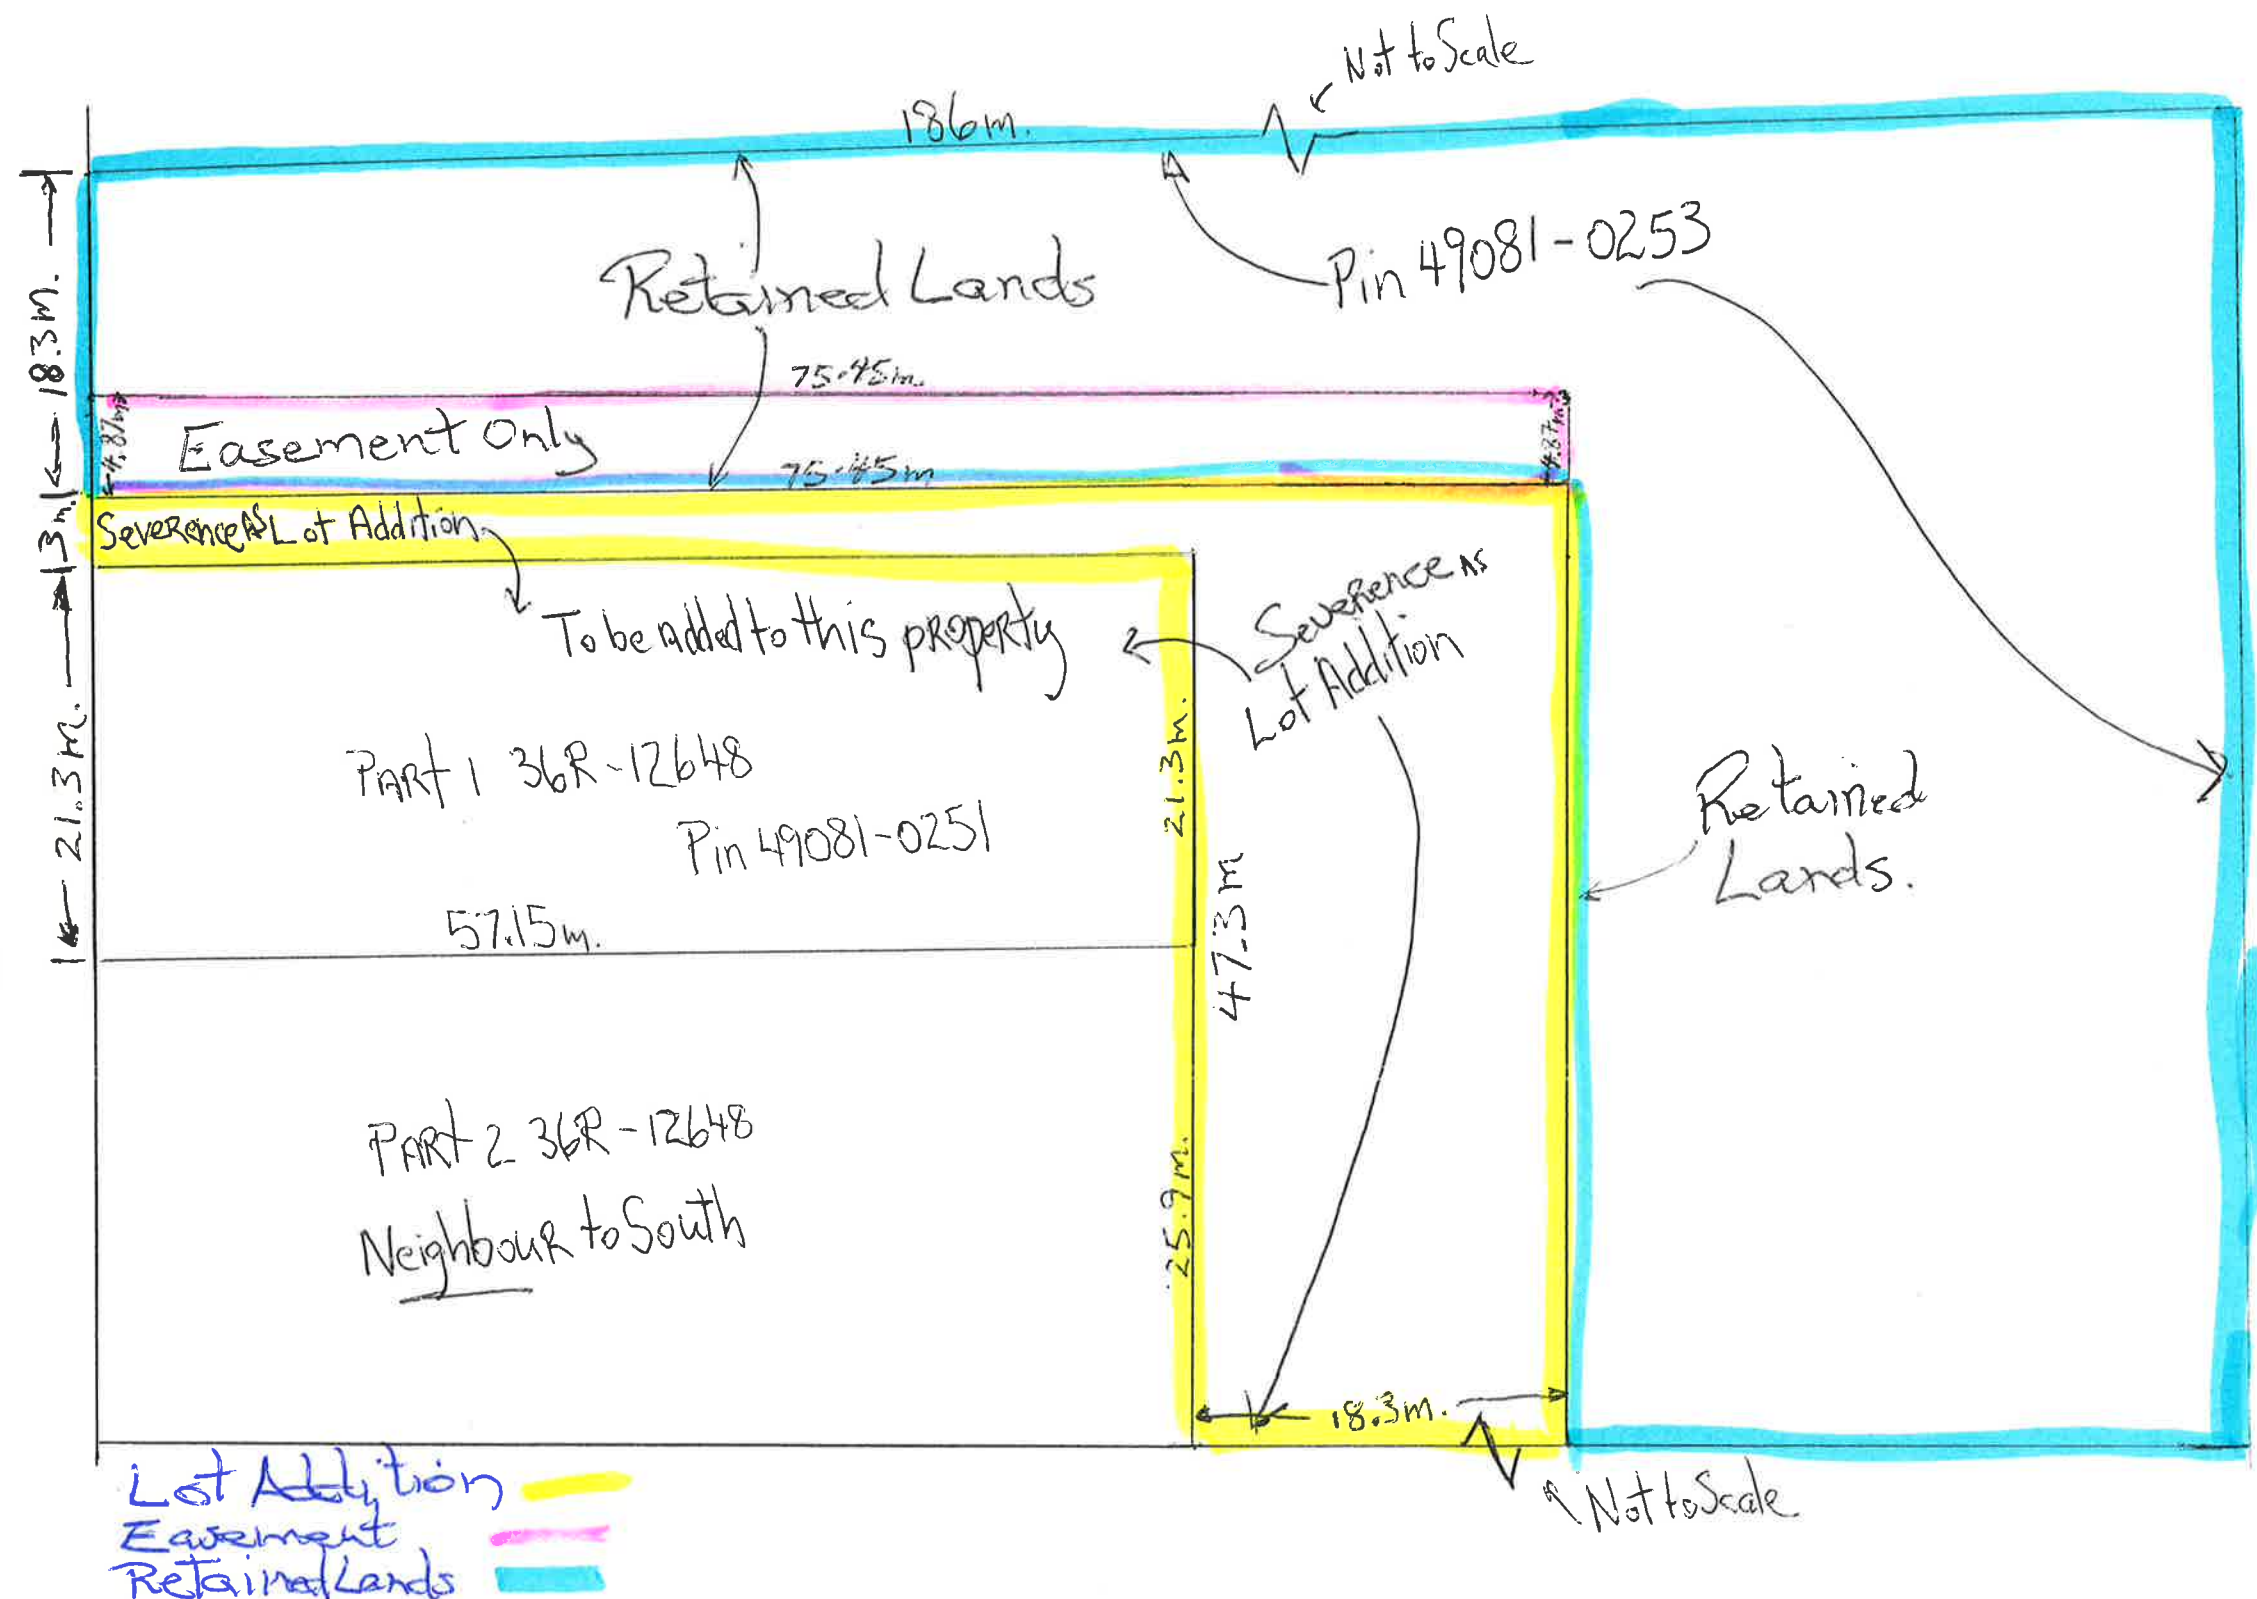 Not to Scale
186m.
Retained Lands
Pin 49081-0253
18.3m.
75.45m.
4.87m
4.87m
Easement Only
75.45m
3m
Severence As Lot Addition
To be added to this property
Severence As
Lot Addition
21.3m.
21.3m.
Part 1 36R-12648
Pin 49081-0251
57.15m.
47.3m
Retained
Lands.
Part 2 36R-12648
Neighbour to South
25.9m.
18.3m.
Not to Scale
Lot Addition
Easement
Retained Lands